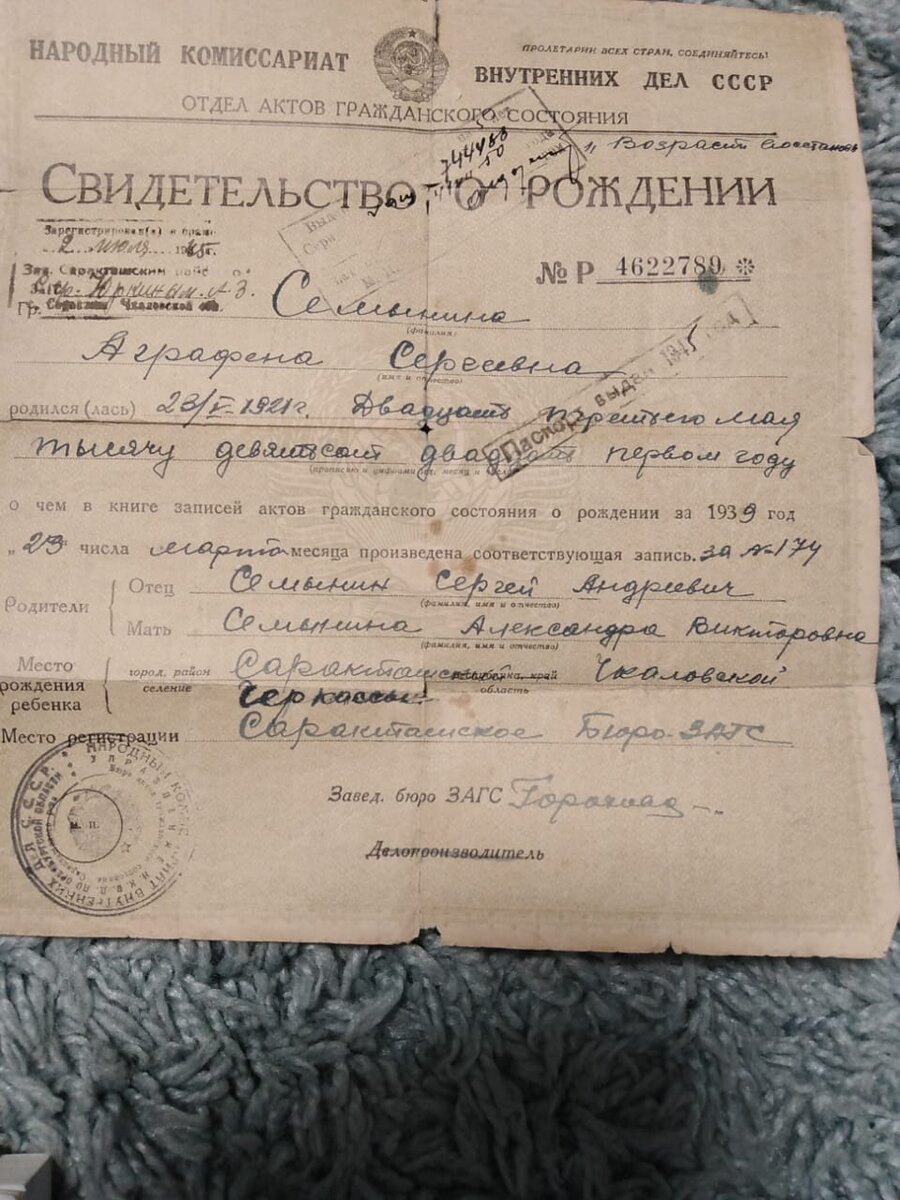 ПРОЛЕТАРИИ ВСЕХ СТРАН, СОЕДИНЯЙТЕСЬ!
НАРОДНЫЙ КОМИССАРИАТ ВНУТРЕННИХ ДЕЛ СССР
ОТДЕЛ АКТОВ ГРАЖДАНСКОГО СОСТОЯНИЯ
744488
Возраст восстановл
СВИДЕТЕЛЬСТВО О РОЖДЕНИИ
Зарегистрирован(а) в браке
2 июля 1945г.
№ Р 4622789
Зав. Саракташским
с гр. Юркиным А. З.
Чкаловской обл.
Гр. Семынина
(фамилия)
Аграфена Сергеевна
(имя и отчество)
Паспорт выдан 1945 год
родился (лась) 23/V-1921г. Двадцать третьего мая
тысячу девятьсот двадцать первом году
(прописью и цифрами год, месяц и число)
о чем в книге записей актов гражданского состояния о рождении за 1939 год
„23“ числа марта месяца произведена соответствующая запись. за № 174
Родители
Отец Семынин Сергей Андреевич
(фамилия, имя и отчество)
Мать Семынина Александра Викторовна
(фамилия, имя и отчество)
Место рождения ребенка
город, селение район край область
Саракташский Чкаловской
Черкассы
Место регистрации Саракташское Бюро ЗАГС
Завед. бюро ЗАГС
Делопроизводитель
М. П.